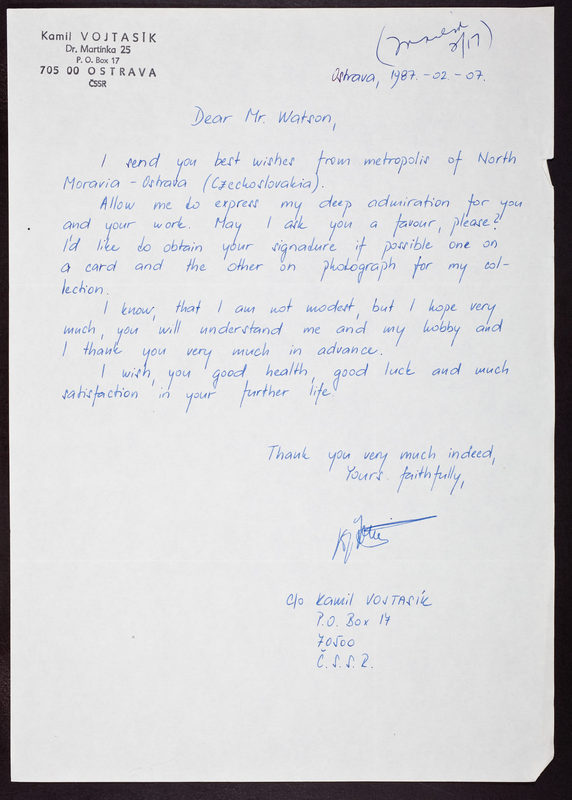 Kamil VOJTASÍK
Dr. Martínka 25
P. O. Box 17
705 00 OSTRAVA
ČSSR
2/17
Ostrava, 1987.-02.-07.
Dear Mr. Watson,
I send you best wishes from metropolis of North
Moravia - Ostrava (Czechoslovakia).
Allow me to express my deep admiration for you
and your work. May I ask you a favour, please?
I'd like to obtain your signature if possible one on
a card and the other on photograph for my col-
lection.
I know, that I am not modest, but I hope very
much, you will understand me and my hobby and
I thank you very much in advance.
I wish, you good health, good luck and much
satisfaction in your further life.
Thank you very much indeed,
Yours faithfully,
c/o Kamil VOJTASÍK
P.O. Box 17
70500
Č.S.S.R.